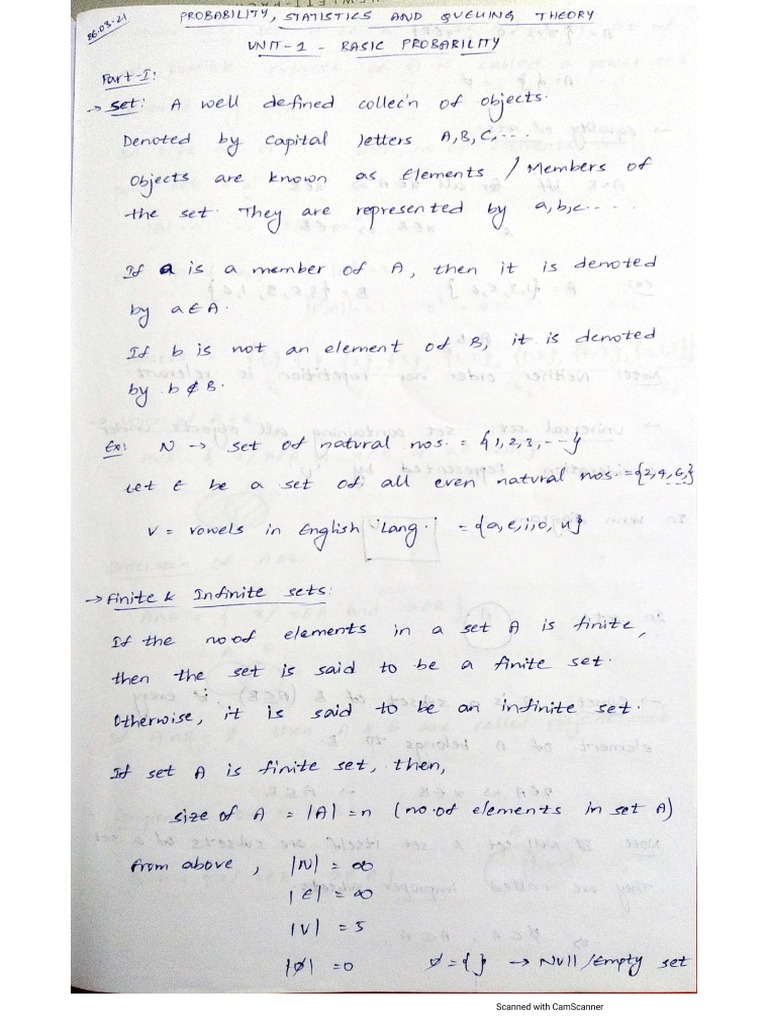 26.03.21
PROBABILITY, STATISTICS AND QUEUING THEORY
UNIT-1 - BASIC PROBABILITY
Part-I:
→ Set: A well defined collec'n of objects.
Denoted by capital letters A,B,C,...
Objects are known as Elements / Members of
the set. They are represented by a,b,c.....
If a is a member of A, then it is denoted
by a∈A.
If b is not an element of B, it is denoted
by b∉B.
Ex: N → set of natural nos. = {1,2,3,---}
Let E be a set of all even natural nos. = {2,4,6,}
V = vowels in English Lang. = {a,e,i,o,u}
→ Finite & Infinite sets:
If the no of elements in a set A is finite,
then the set is said to be a finite set.
Otherwise, it is said to be an infinite set.
If set A is finite set, then,
size of A = |A| = n (no. of elements in set A)
From above, |N| = ∞
|E| = ∞
|V| = 5
|∅| = 0 ∅ = {} → Null/Empty set
Scanned with CamScanner